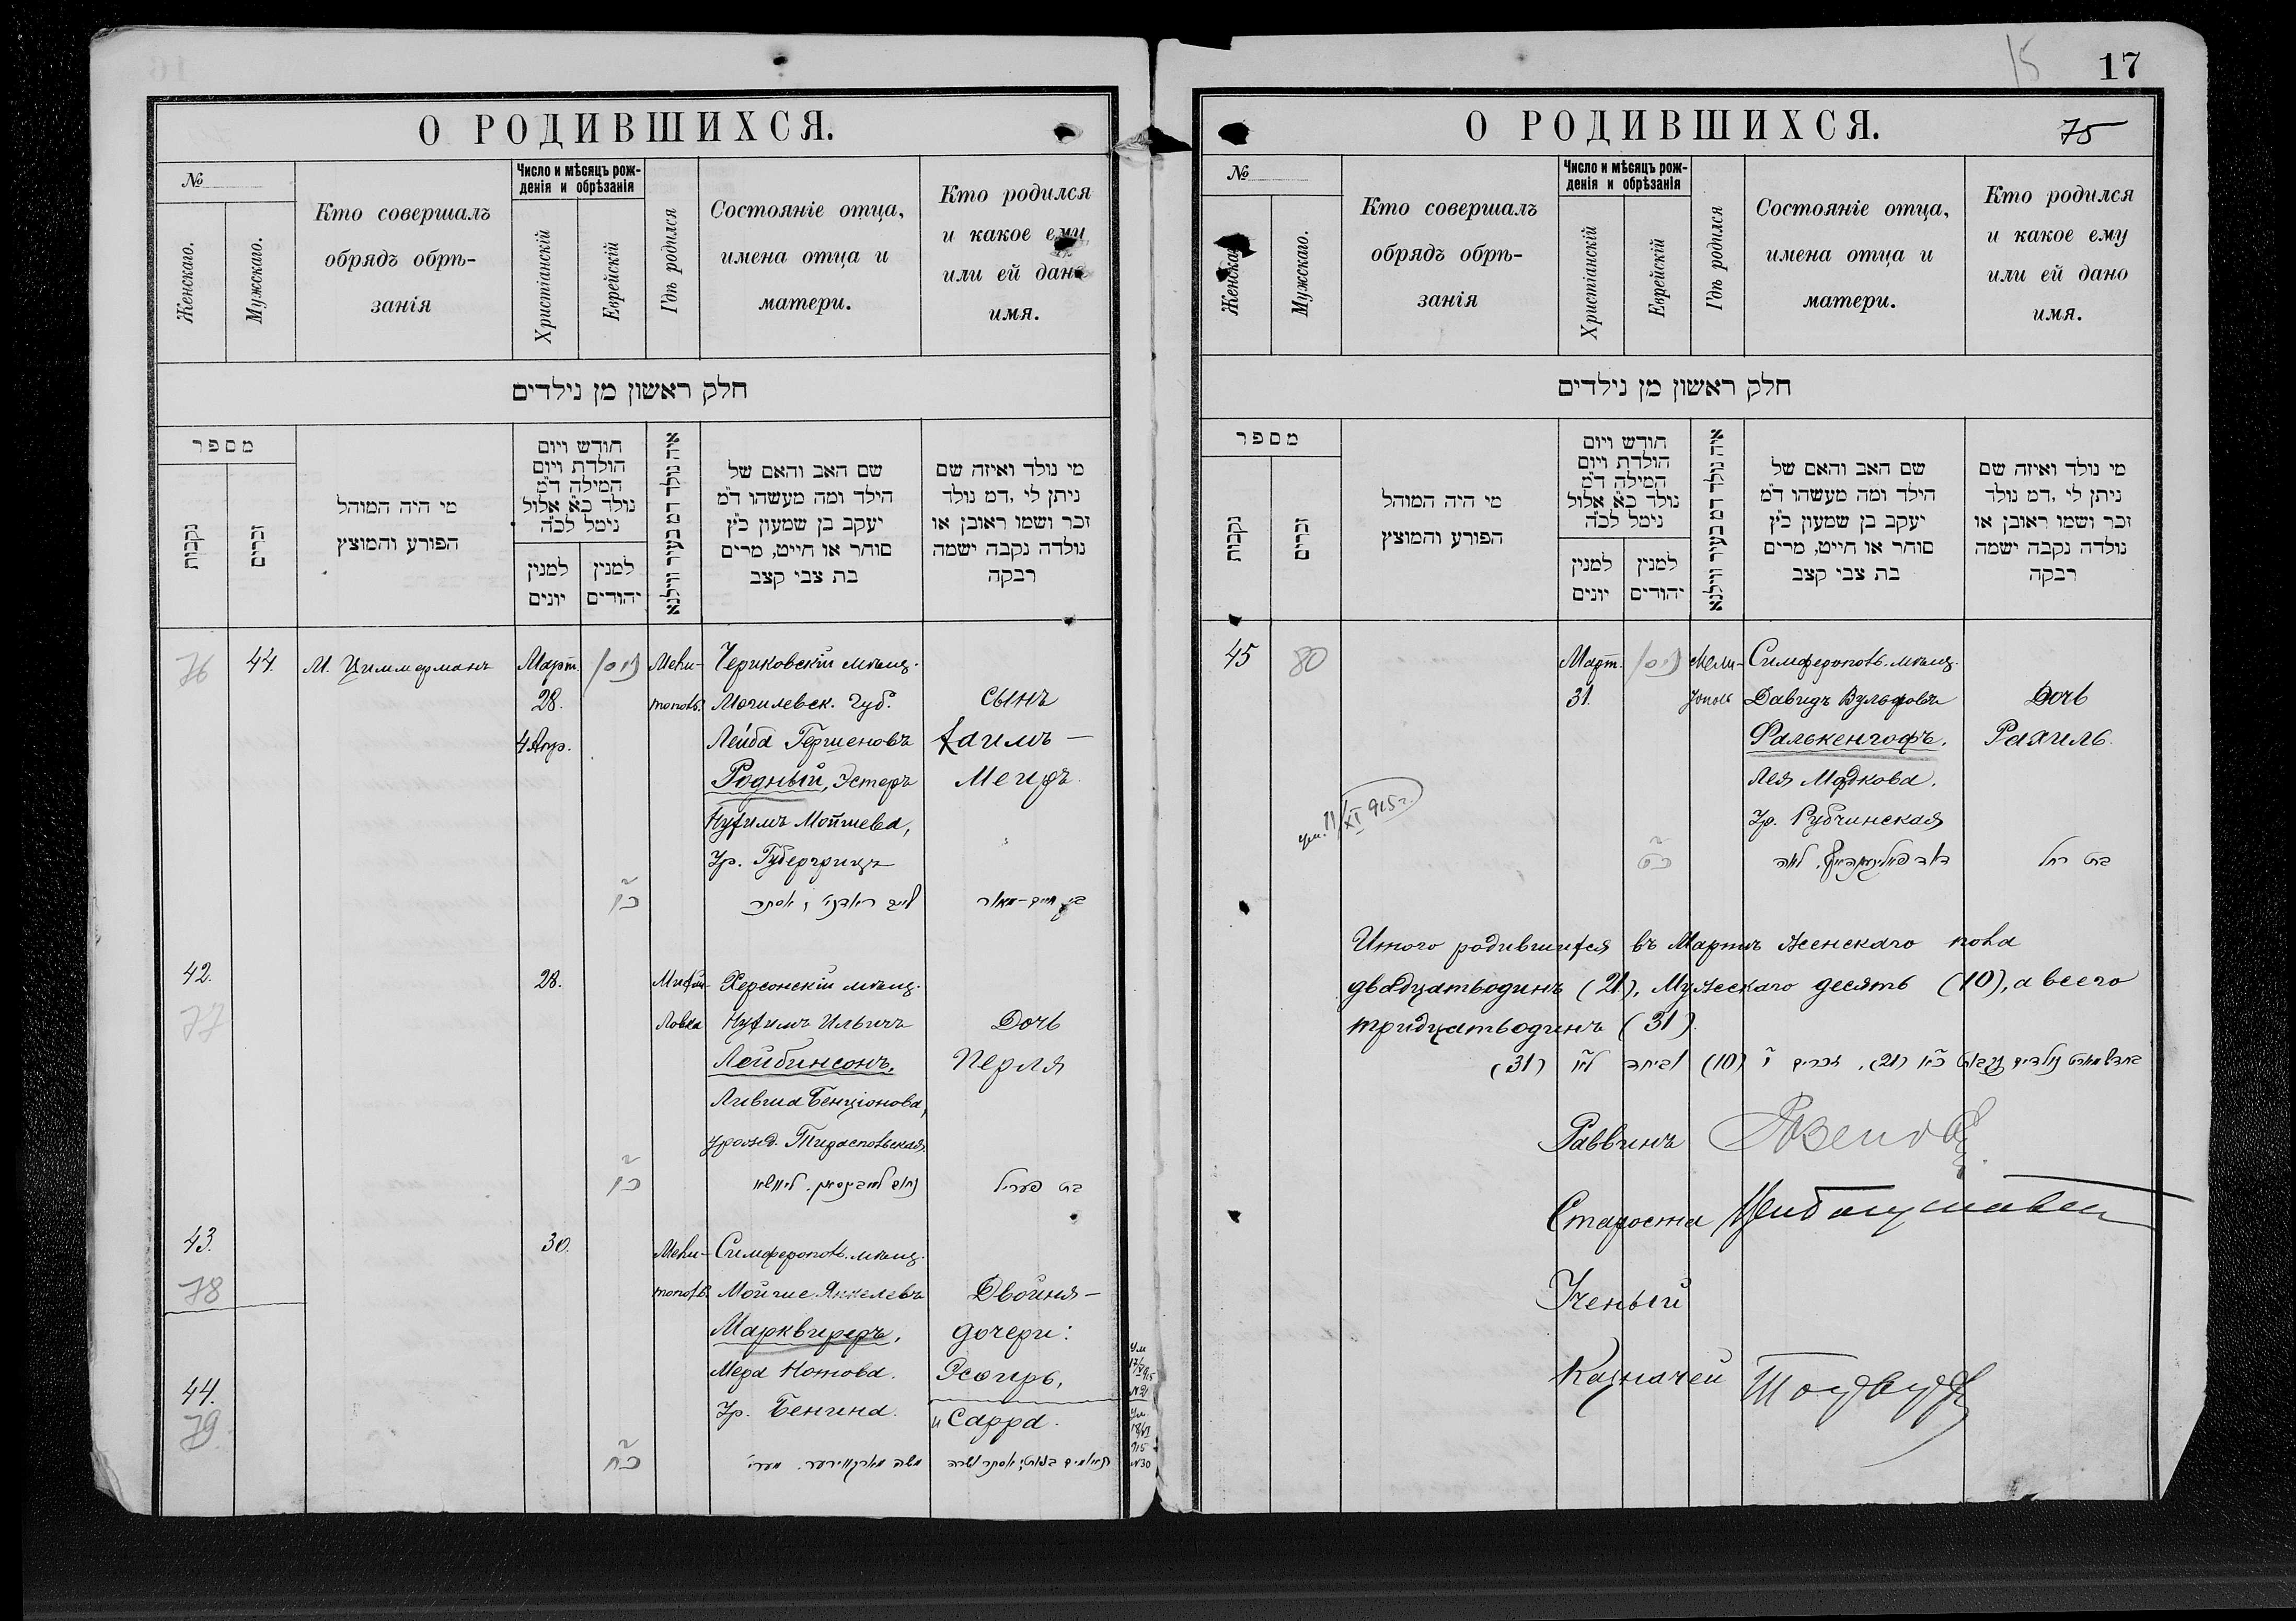 О РОДИВШИХСЯ.
№
Женскаго.
Мужскаго.
Кто совершалъ
обрядъ обрѣ-
занія
Число и мѣсяцъ рож-
денія и обрѣзанія
Христіанскій
Еврейскій
Гдѣ родился
Состояніе отца,
имена отца и
матери.
Кто родился
и какое ему
или ей дано
имя.
חלק ראשון מן נילדים
מספר
נקבות
זכרים
מי היה המוהל
הפורע והמוצץ
חודש ויום
הולדת ויום
המילה ד״מ
נולד כ״א אלול
נימל לכ״ה
למנין
יונים
למנין
יהודים
איה נולד דמ בעיר ווילנא
שם האב והאם של
הילד ומה מעשהו ד״מ
יעקב בן שמעון כ״ץ
סוחר או חייט, מרים
בת צבי קצב
מי נולד ואיזה שם
ניתן לי ,דמ נולד
זכר ושמו ראובן או
נולדה נקבה ישמה
רבקה
76 44. М. Циммерманъ Март. ניסן Мели- Чериковскій мѣщ.
28. тополь. Могилевск. Губ. Сынъ
4 Апр. Лейба Гершеновъ Хаимъ —
Родный, Эстеръ Меиръ.
Нухимъ Мойшева,
Ур. Губергрицъ
42. 28. Михай- Херсонскій мѣщ.
77 ловка Нухимъ Ильичъ Дочь
Лейбинсонъ, Перля
Лившa Бенціонова,
урожд. Тираспольская.
43. 30. Мели- Симферополь. мѣщ.
78 тополь. Мойше Янкелевъ Двойня —
Марквиреръ, дочери:
Мера Нотова. Эсѳирь,
44. Ур. Бенина. и Сарра.
79
Ум
№21
Ум
18/VI
915
№30
15
17
О РОДИВШИХСЯ.
75
№
Женскаго.
Мужскаго.
Кто совершалъ
обрядъ обрѣ-
занія
Число и мѣсяцъ рож-
денія и обрѣзанія
Христіанскій
Еврейскій
Гдѣ родился
Состояніе отца,
имена отца и
матери.
Кто родился
и какое ему
или ей дано
имя.
חלק ראשון מן נילדים
מספר
נקבות
זכרים
מי היה המוהל
הפורע והמוצץ
חודש ויום
הולדת ויום
המילה ד״מ
נולד כ״א אלול
נימל לכ״ה
למנין
יונים
למנין
יהודים
איה נולד דמ בעיר ווילנא
שם האב והאם של
הילד ומה מעשהו ד״מ
יעקב בן שמעון כ״ץ
סוחר או חייט, מרים
בת צבי קצב
מי נולד ואיזה שם
ניתן לי ,דמ נולד
זכר ושמו ראובן או
נולדה נקבה ישמה
רבקה
45 80 Март. ניסן Мели- Симферополь. мѣщ.
31. тополь Давидъ Вульфовъ Дочь
Фалькенгофъ. Рахиль.
Лея Мордкова.
ум. 11/XI 915 г.
Ур. Рубчинская
בת רחל
Итого родившихся въ Мартѣ женскаго пола
двадцатьодинъ (21), Мужескаго десять (10), а всего
тридцатьодинъ (31).
Раввинъ
Староста
Ученый
Казначей